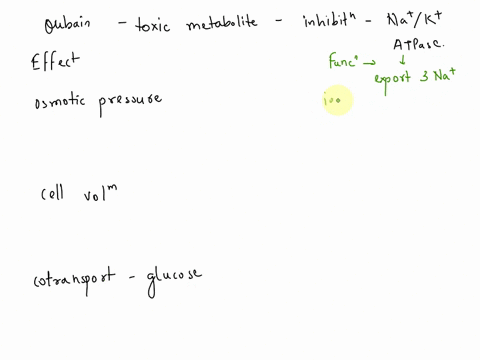 Oubain - toxic metabolite - inhibitⁿ - Na⁺/K⁺
ATPase.
Effect
Funcⁿ → ↓
export 3 Na⁺
osmotic pressure
cell volᵐ
cotransport - glucose